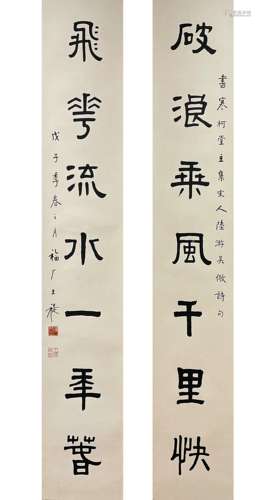 破浪乘風千里快
書寒柯堂主集宋人陸游吳儆詩句
飛花流水一年春
戊子季春之月福厂王褆